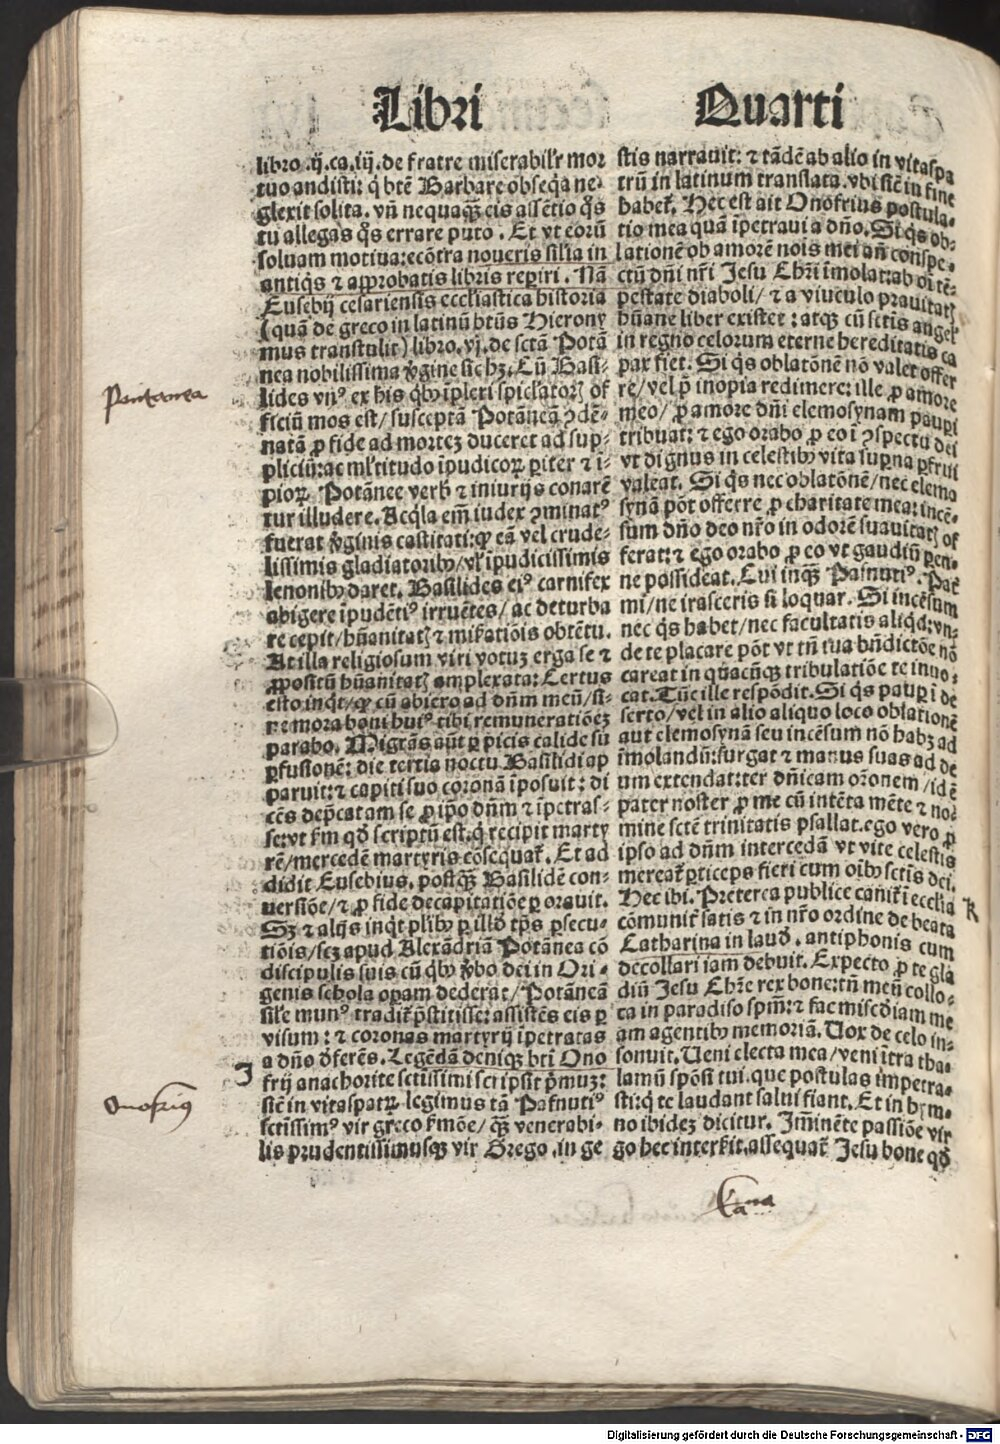 Libri Quarti
libro .ij. ca. iij. de fratre miserabilr̄ mor
tuo audisti: q̄ btē Barbare obseq̄a ne⸗
glexit solita. vñ nequaq̄ȝ eis assētio q̄s
tu allegas q̄s errare puto. Et vt eorū
soluam motiua: ecōtra noueris silia in
antiq̄s ⁊ approbatis libris reperiri. Nā
Eusebij cesariensis eccl̄iastica historia
(quā de greco in latinū btūs Hierony
mus transtulit) libro. vj. de sctā Potā
nea nobilissima ꝟgine sic hȝ. Cū Basi⸗
lides vnꝰ ex his qͥbꝰ īpleri spicl̄atorꝝ of
ficiū mos est/ susceptā Potāneā ꝯdē⸗
natā ꝓ fide ad morteȝ duceret ad sup⸗
pliciū: ac ml̄titudo īpudicoꝝ ꝑiter ⁊ ī⸗
pioꝝ Potānee verb̄ ⁊ iniurijs conare
tur illudere. Acq̄la em̄ iudex ꝯminatꝰ
fuerat ꝟginis castitati: ꝙ eā vel crude⸗
lissimis gladiatoribꝰ/ vl̄ īpudicissimis
lenonibꝰ daret. Basilides eiꝰ carnifex
abigere īpudētiꝰ irruētes/ ac deturba
re cepit/ hūanitatꝭ ⁊ mis̄atiōis obtētu.
At illa religiosum viri votuȝ erga se ⁊
ꝓpositū hūanitatꝭ amplexata: Certus
esto inqͥt/ ꝙ cū abiero ad dn̄m meū/ si⸗
ne mora boni huiꝰ tibi remuneratiōeȝ
parabo. Migrās aūt ꝑ picis calide su
ꝑfusionē: die tertia noctu Basilidi ap
paruit: ⁊ capiti suo coronā īposuit: di
cēs dep̄catam se ꝓ ip̄o dn̄m ⁊ īpetras⸗
se: vt s̄m qd̄ scriptū est. q̄ recipit marty
rē/ mercedē martyris cōsequat̄. Et ad
didit Eusebius. postq̄ȝ Basilidē con⸗
uersiōe/ ⁊ ꝓ fide decapitatiōe ꝑorauit.
Sȝ ⁊ alijs inqͥt pl̄ibꝰ ꝑ illd̄ tp̄s ꝑsecu⸗
tiōis/ scȝ apud Alexādriā Potānea cō
discipulis suis cū qͥbꝰ ꝟbo dei in Ori⸗
genis schola oꝑam dederat/ Potāneā
sil̄e munꝰ tradit̄ p̄stitisse: assistēs eis ꝑ
visum: ⁊ coronas martyrij īpetratas
a dn̄o d̄ferēs. Legēdā deniqȝ bti Ono
frij anachorite sctissimi scripsit p̄muȝ:
sic̄ in vitaspatꝝ legimus tā Pafnutiꝰ
sctissimꝰ vir greco s̄mōe/ q̄ȝ venerabi⸗
lis prudentissimusqȝ vir Grego. in ge
stis narrauit: ⁊ tādē ab alio in vitaspa
trū in latinum translata. vbi sic̄ in fine
habet̄. Hec est ait Onofrius postula⸗
tio mea quā īpetraui a dn̄o. Si q̄s ob⸗
lationē ob amorē nois mei añ conspe⸗
ctū dn̄i nr̄i Jesu Chr̄i īmolat: ab oī tē⸗
pestate diaboli/ ⁊ a viuculo prauitatꝭ
hūane liber existet: atqȝ cū sctīs angel̄
in regno celorum eterne hereditatis ca
pax fiet. Si q̄s oblatōnē nō valet offer
re/ vel p̄ inopia redimere: ille ꝓ amore
meo/ ꝓ amore dn̄i elemosynam pauꝑi
tribuat: ⁊ ego orabo ꝓ eo ī ꝯspectu dei
vt dignus in celestibꝰ vita suꝑna ꝑfrui
valeat. Si q̄s nec oblatōnē/ nec elemo
synā pōt offerre ꝓ charitate mea: incē⸗
sum dn̄o deo nr̄o in odorē suauitatꝭ of
ferat: ⁊ ego orabo ꝓ eo vt gaudiū ꝑen⸗
ne possideat. Cui inq̄ȝ Pafnutiꝰ. Pat̄
mi/ ne irasceris si loquar. Si incēsum
nec q̄s habet/ nec facultatis aliqd̄: vn⸗
de te placare pōt vt tn̄ tua bn̄dictōe nō
careat in quacūqȝ tribulatiōe te inuo⸗
cat. Tūc ille respōdit. Si q̄s pauꝑ ī de
serto/ vel in alio aliquo loco oblationē
aut elemosynā seu incēsum nō habȝ ad
īmolandū: surgat ⁊ manus suas ad de
um extendat: ter dn̄icam orōnem/ idē
pater noster ꝓ me cū intēta mēte ⁊ no⸗
mine sctē trinitatis psallat. ego vero ꝓ
ipso ad dn̄m intercedā vt vite celestis
mereat̄ ꝑticeps fieri cum oībꝰ sctīs dei.
Hec ibi. Preterea publice canit̄ ī eccl̄ia
cōmunit̄ satis ⁊ in nr̄o ordine de beata
Catharina in laud̄. antiphonis cum
decollari iam debuit. Expecto ꝓ te gla
diū Jesu Chr̄e rex bone: tn̄ meū collo⸗
ca in paradiso sp̄m: ⁊ fac misc̄diam me
am agentibꝰ memoriā. Vox de celo in⸗
sonuit. Veni electa mea/ veni ītra tha⸗
lamū spōsi tui. que postulas impetra⸗
sti: q̄ te laudant salui fiant. Et in hym⸗
no ibideȝ dicitur. Jm̄inēte passiōe vir
go hec interserit. assequat̄ Jesu bone qd̄
Pantanea
J
Onofrius
K
Digitalisierung gefördert durch die Deutsche Forschungsgemeinschaft - DFG